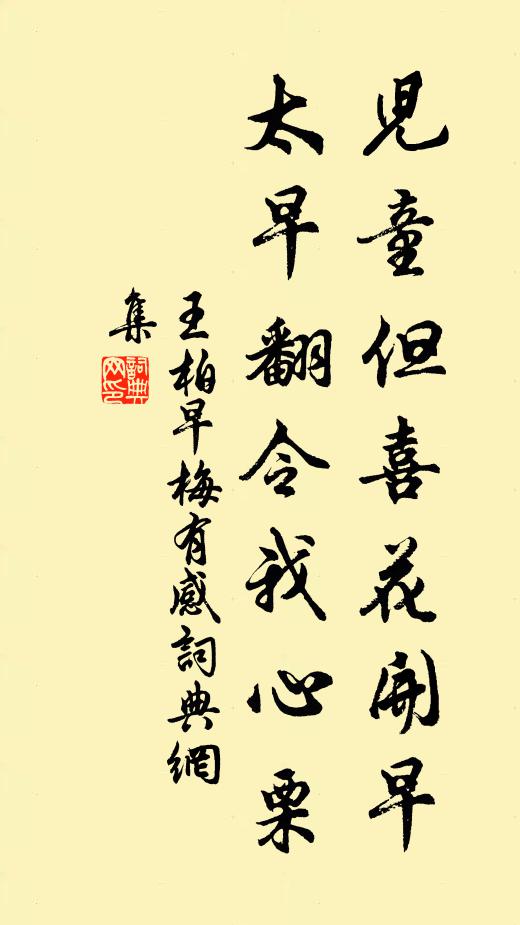 兒童但喜花開早
太早翻令我心栗
王柏早梅有感詞典網
集
詞典
网印